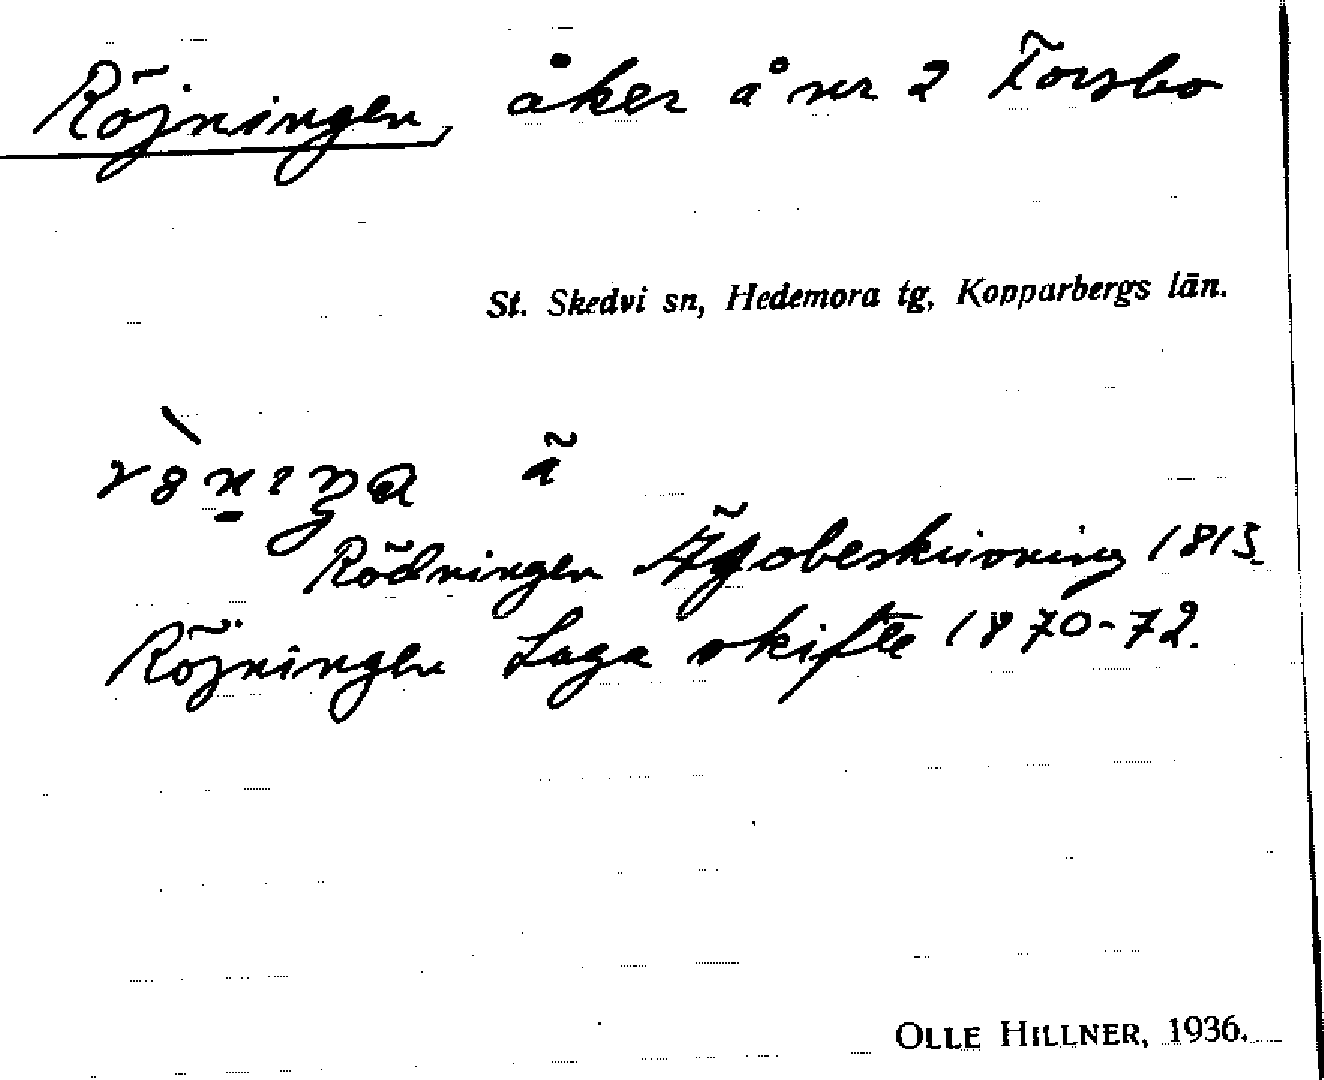 Röjningen, åker å nr 2 Forsbo
St. Skedvi sn, Hedemora tg, Kopparbergs län.
ã
Rödningen Ägobeskrivning 1815
Röjningen Laga skifte 1870-72.
OLLE HILLNER, 1936.